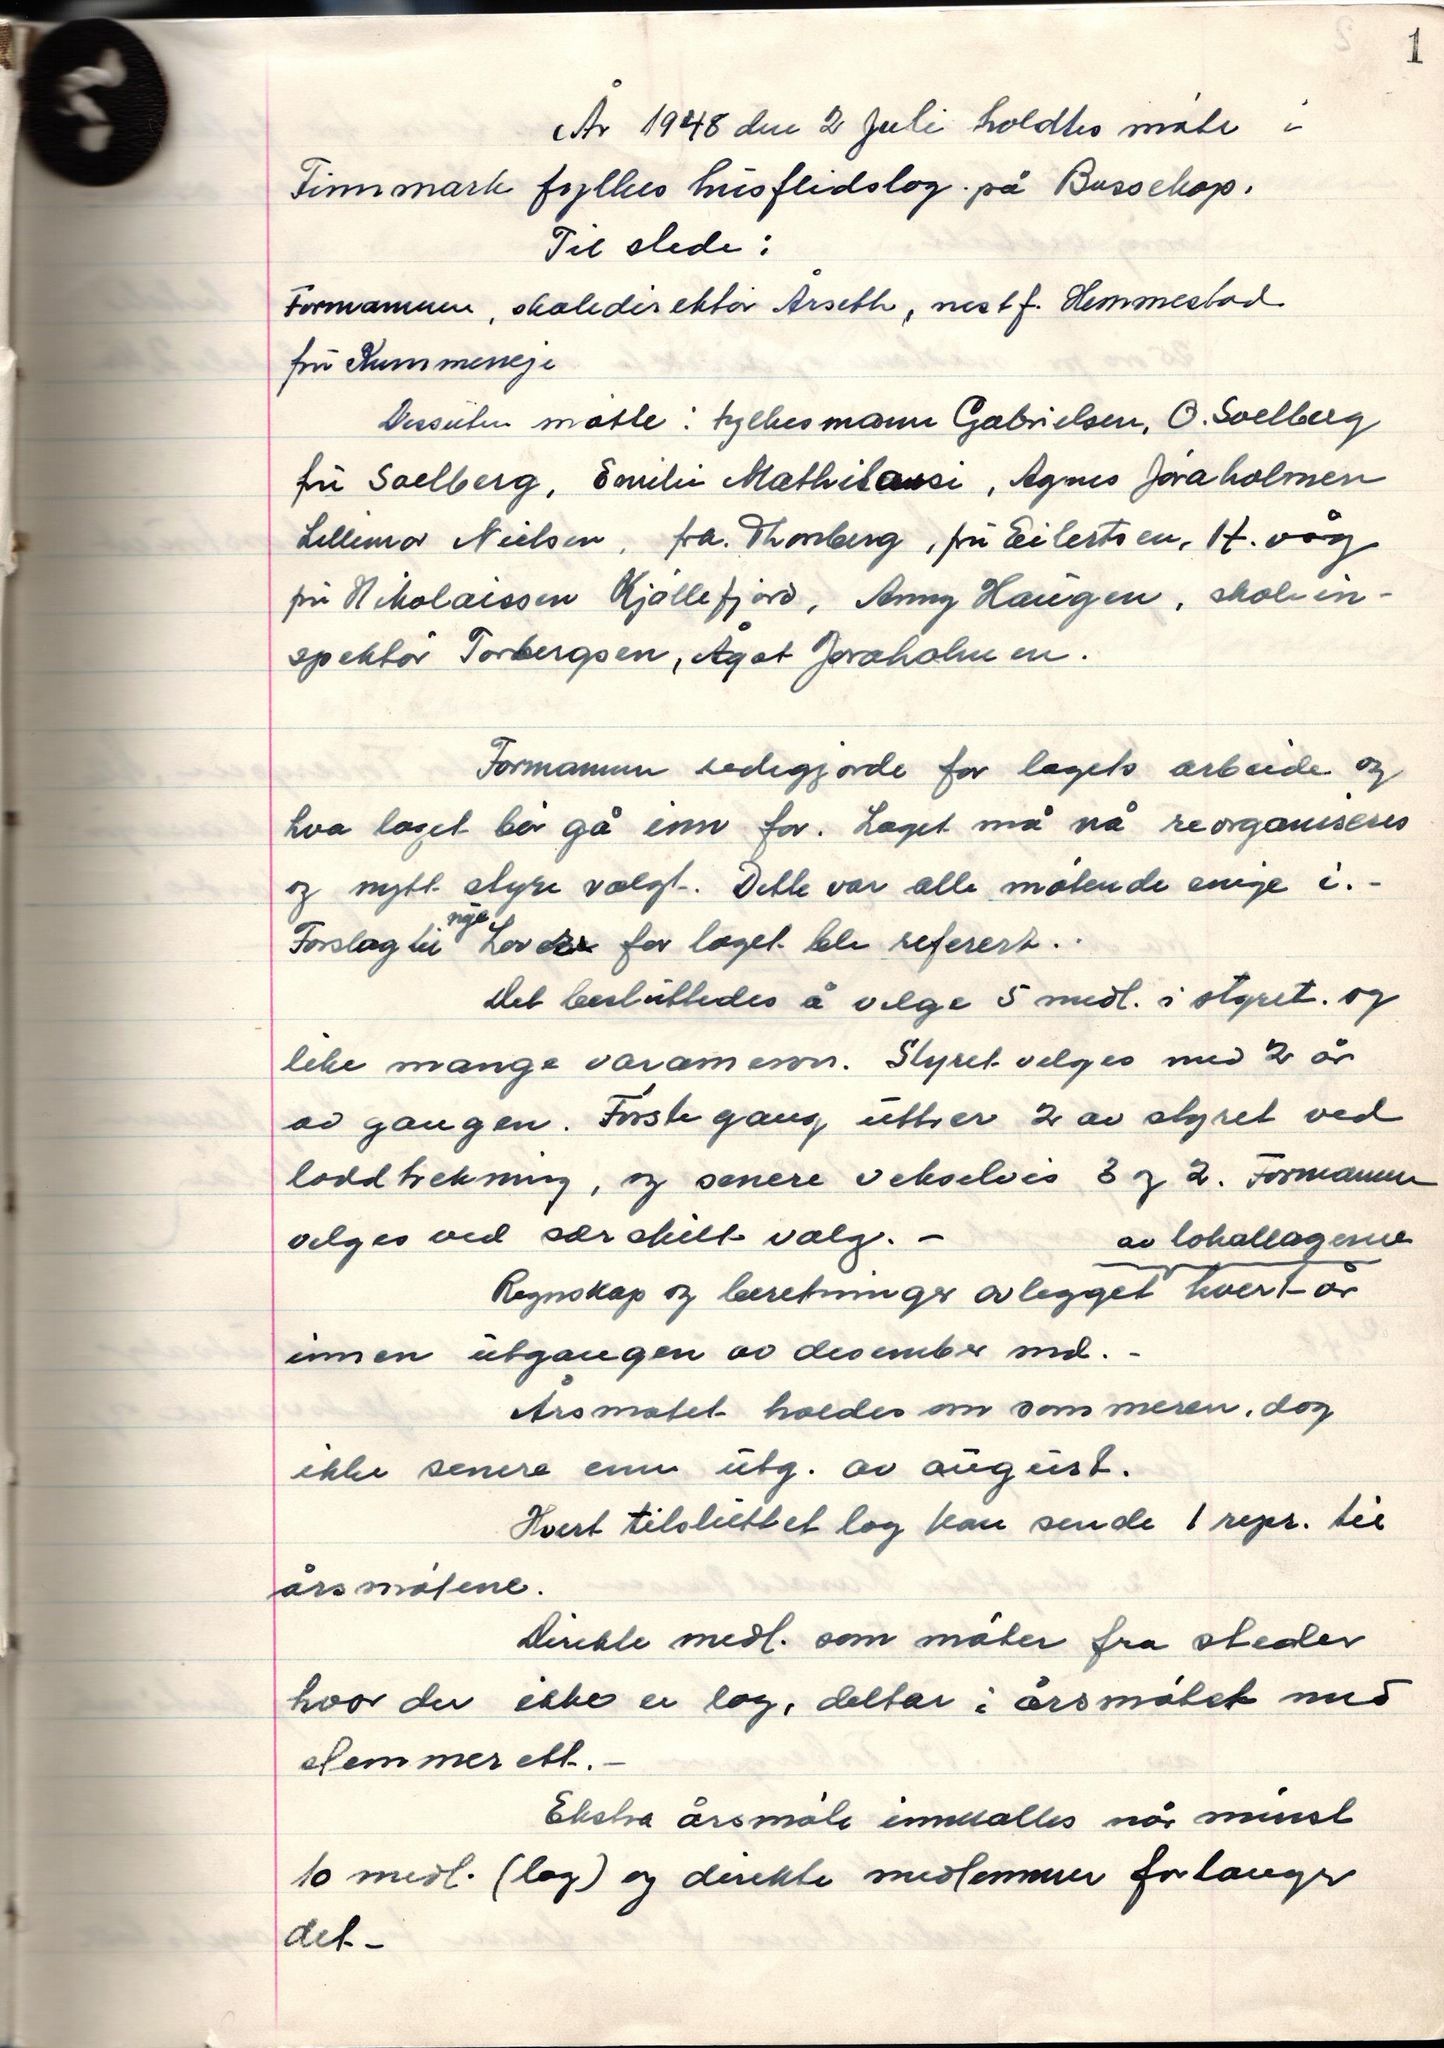 1
År 1948 den 2 Juli holdtes møte i
Finnmark fylkes husflidslag på Bossekop.
Til stede:
Formannen, skoledirektør Årseth, nestf. Hemmestad
fru Rummeneje
Dessuten møtte: fylkesmann Gabrielsen, O. Soelberg
fru Soelberg, Emilie, Agnes Joraholmen
Lillemor Nielsen, frk. Thorsberg, fru Eilertsen, H. våg
fru Nikolaissen Kjøllefjord, Anny Haugen, skolein-
spektør Torbergsen, Ågot Joraholmen.
Formannen redegjorde for lagets arbeide og
hva laget bør gå inn for. Laget må nå reorganiseres
og nytt styre valgt. Dette var alle møtende enige i. -
Forslag til nye Lover for laget ble referert..
Det besluttedes å velge 5 medl. i styret. og
like mange varamenn. Styret velges med 2 år
av gangen. Første gang uttrer 2 av styret ved
loddtrekning, og senere vekselvis 3 og 2. Formannen
velges ved særskilt valg. -
av lokallagene
Regnskap og beretninger avlegget hvert år
innen utgangen av desember md. -
Årsmøtet holdes om sommeren, dog
ikke senere enn utg. av august.
Hvert tilsluttet lag kan sende 1 repr. til
årsmøtene.
Direkte medl. som møter fra steder
hvor der ikke er lag, deltar i årsmøtet med
stemmerett. -
Ekstra årsmøte innkalles når minst
10 medl. (lag) og direkte medlemmer forlanger
det -